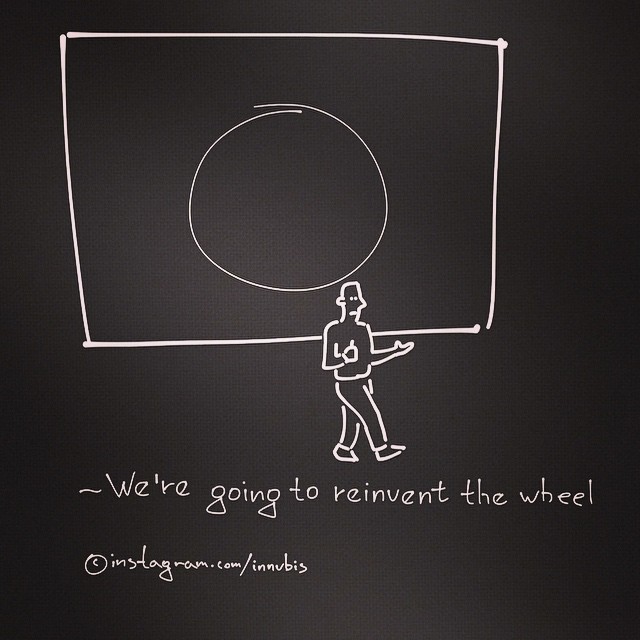 ~We're going to reinvent the wheel
©instagram.com/innubis